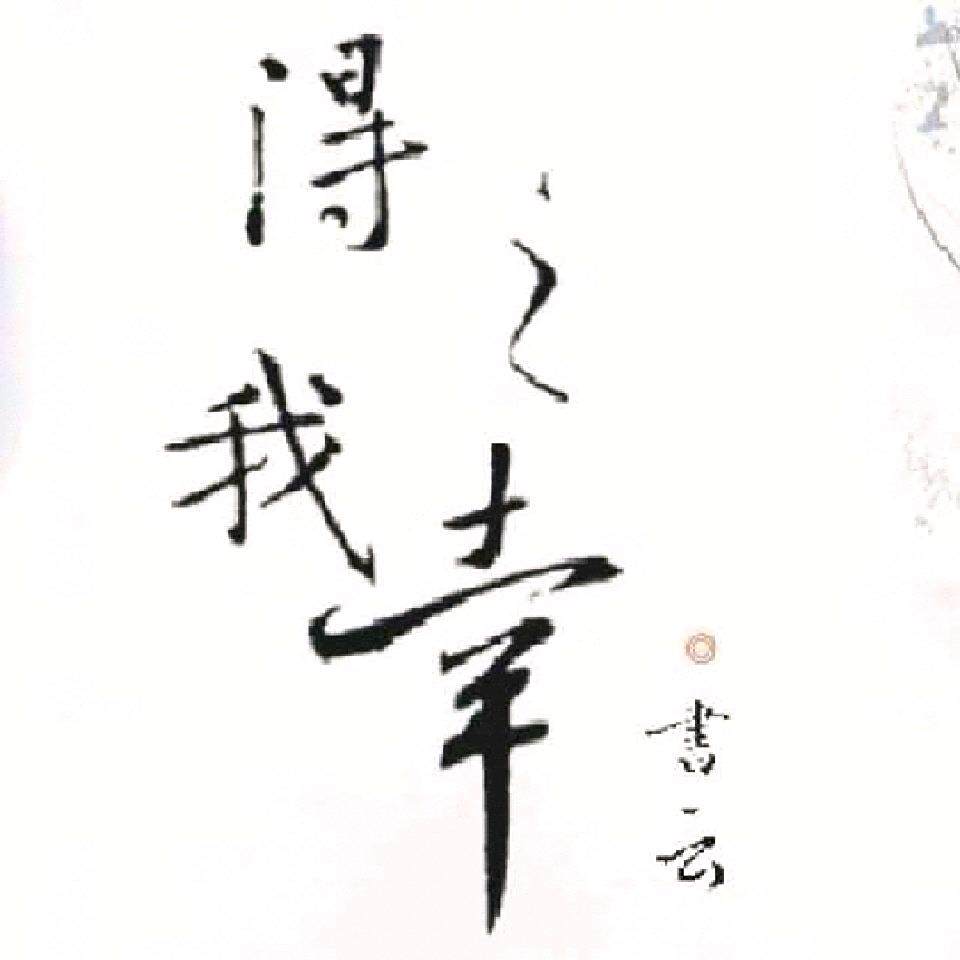 得之
我幸
書云